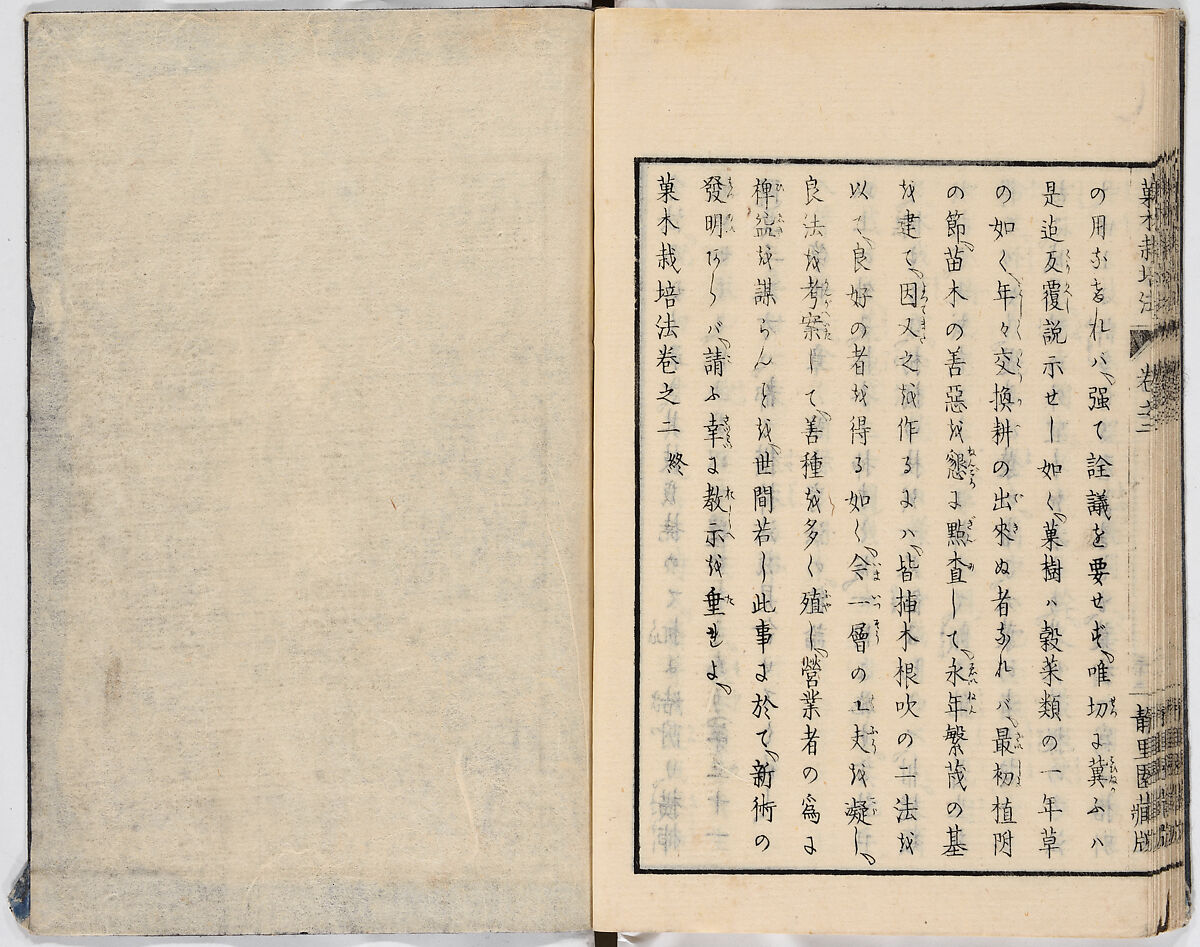 菓木栽培法 卷之二 靜里園藏版
の用なきれバ、强て詮議を要せず、唯切に冀ふハ
是迄反覆說示せし如く、菓樹ハ穀菜類の一年草
の如く、年々交換耕の出來ぬ者なれバ、最初植附
の節、苗木の善惡を懇に點査して、永年繁茂の基
を建て、因又之を作るにハ、皆挿木根吹の二法を
以て、良好の者を得る如く、今一層の工夫を凝し、
良法を考案して、善種を多く殖し、營業者の爲に
裨益を謀らんとを、世間若し此事に於て、新術の
發明あらバ、請ふ幸に教示を垂れよ、
菓木栽培法卷之二 終